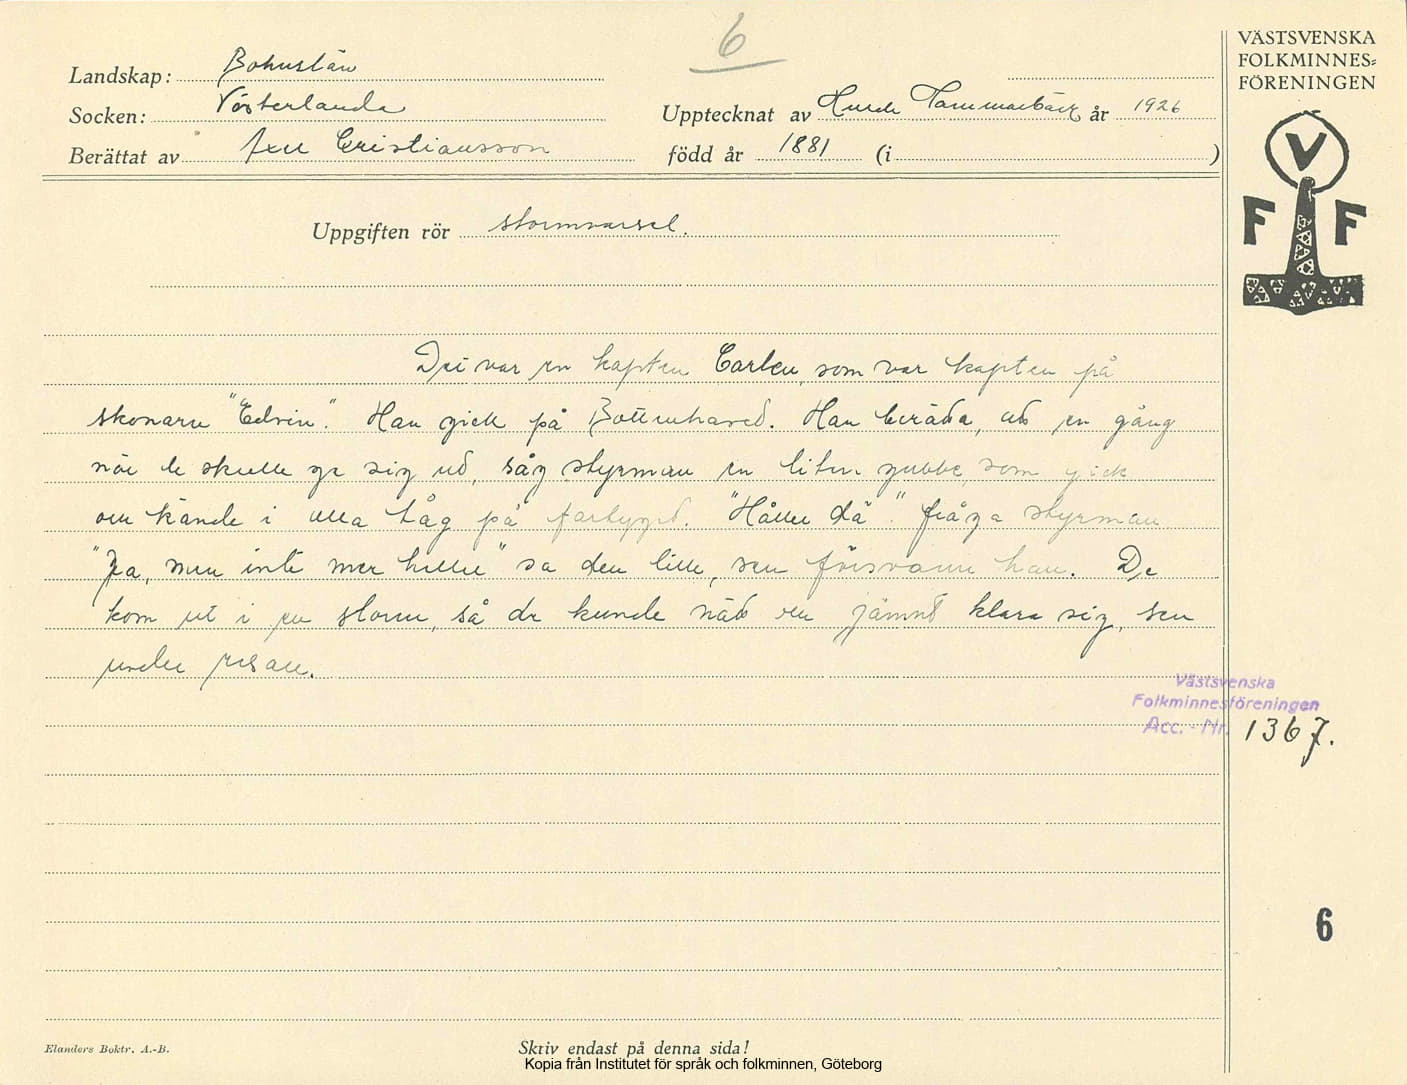 6
VÄSTSVENSKA
FOLKMINNES=
FÖRENINGEN
Landskap: Bohuslän
Socken: Västerlanda
Upptecknat av Hammarbäck år 1926
Berättat av Axel Cristiansson
född år 1881 (i )
V
F F
Uppgiften rör stormvarsel.
Dei var en kapten Carlen, som var kapten på
skonarn "Edvin". Han gick på Bottenhaved. Han beräda, ad en gång
när de skulle ge sig ud, såg styrman en liten gubbe, som gick
om kände i alla tåg på fartyged. "Håller dä". fråga styrman
"Ja, men inte mer heller" sa den lille, sen försvann han. De
kom ut i en storm, så de kunde näd en jämnt klara sig, sen
under resan.
Västsvenska
Folkminnesföreningen
Acc. - Nr. 1367.
6
Elanders Boktr. A.-B.
Skriv endast på denna sida!
Kopia från Institutet för språk och folkminnen, Göteborg